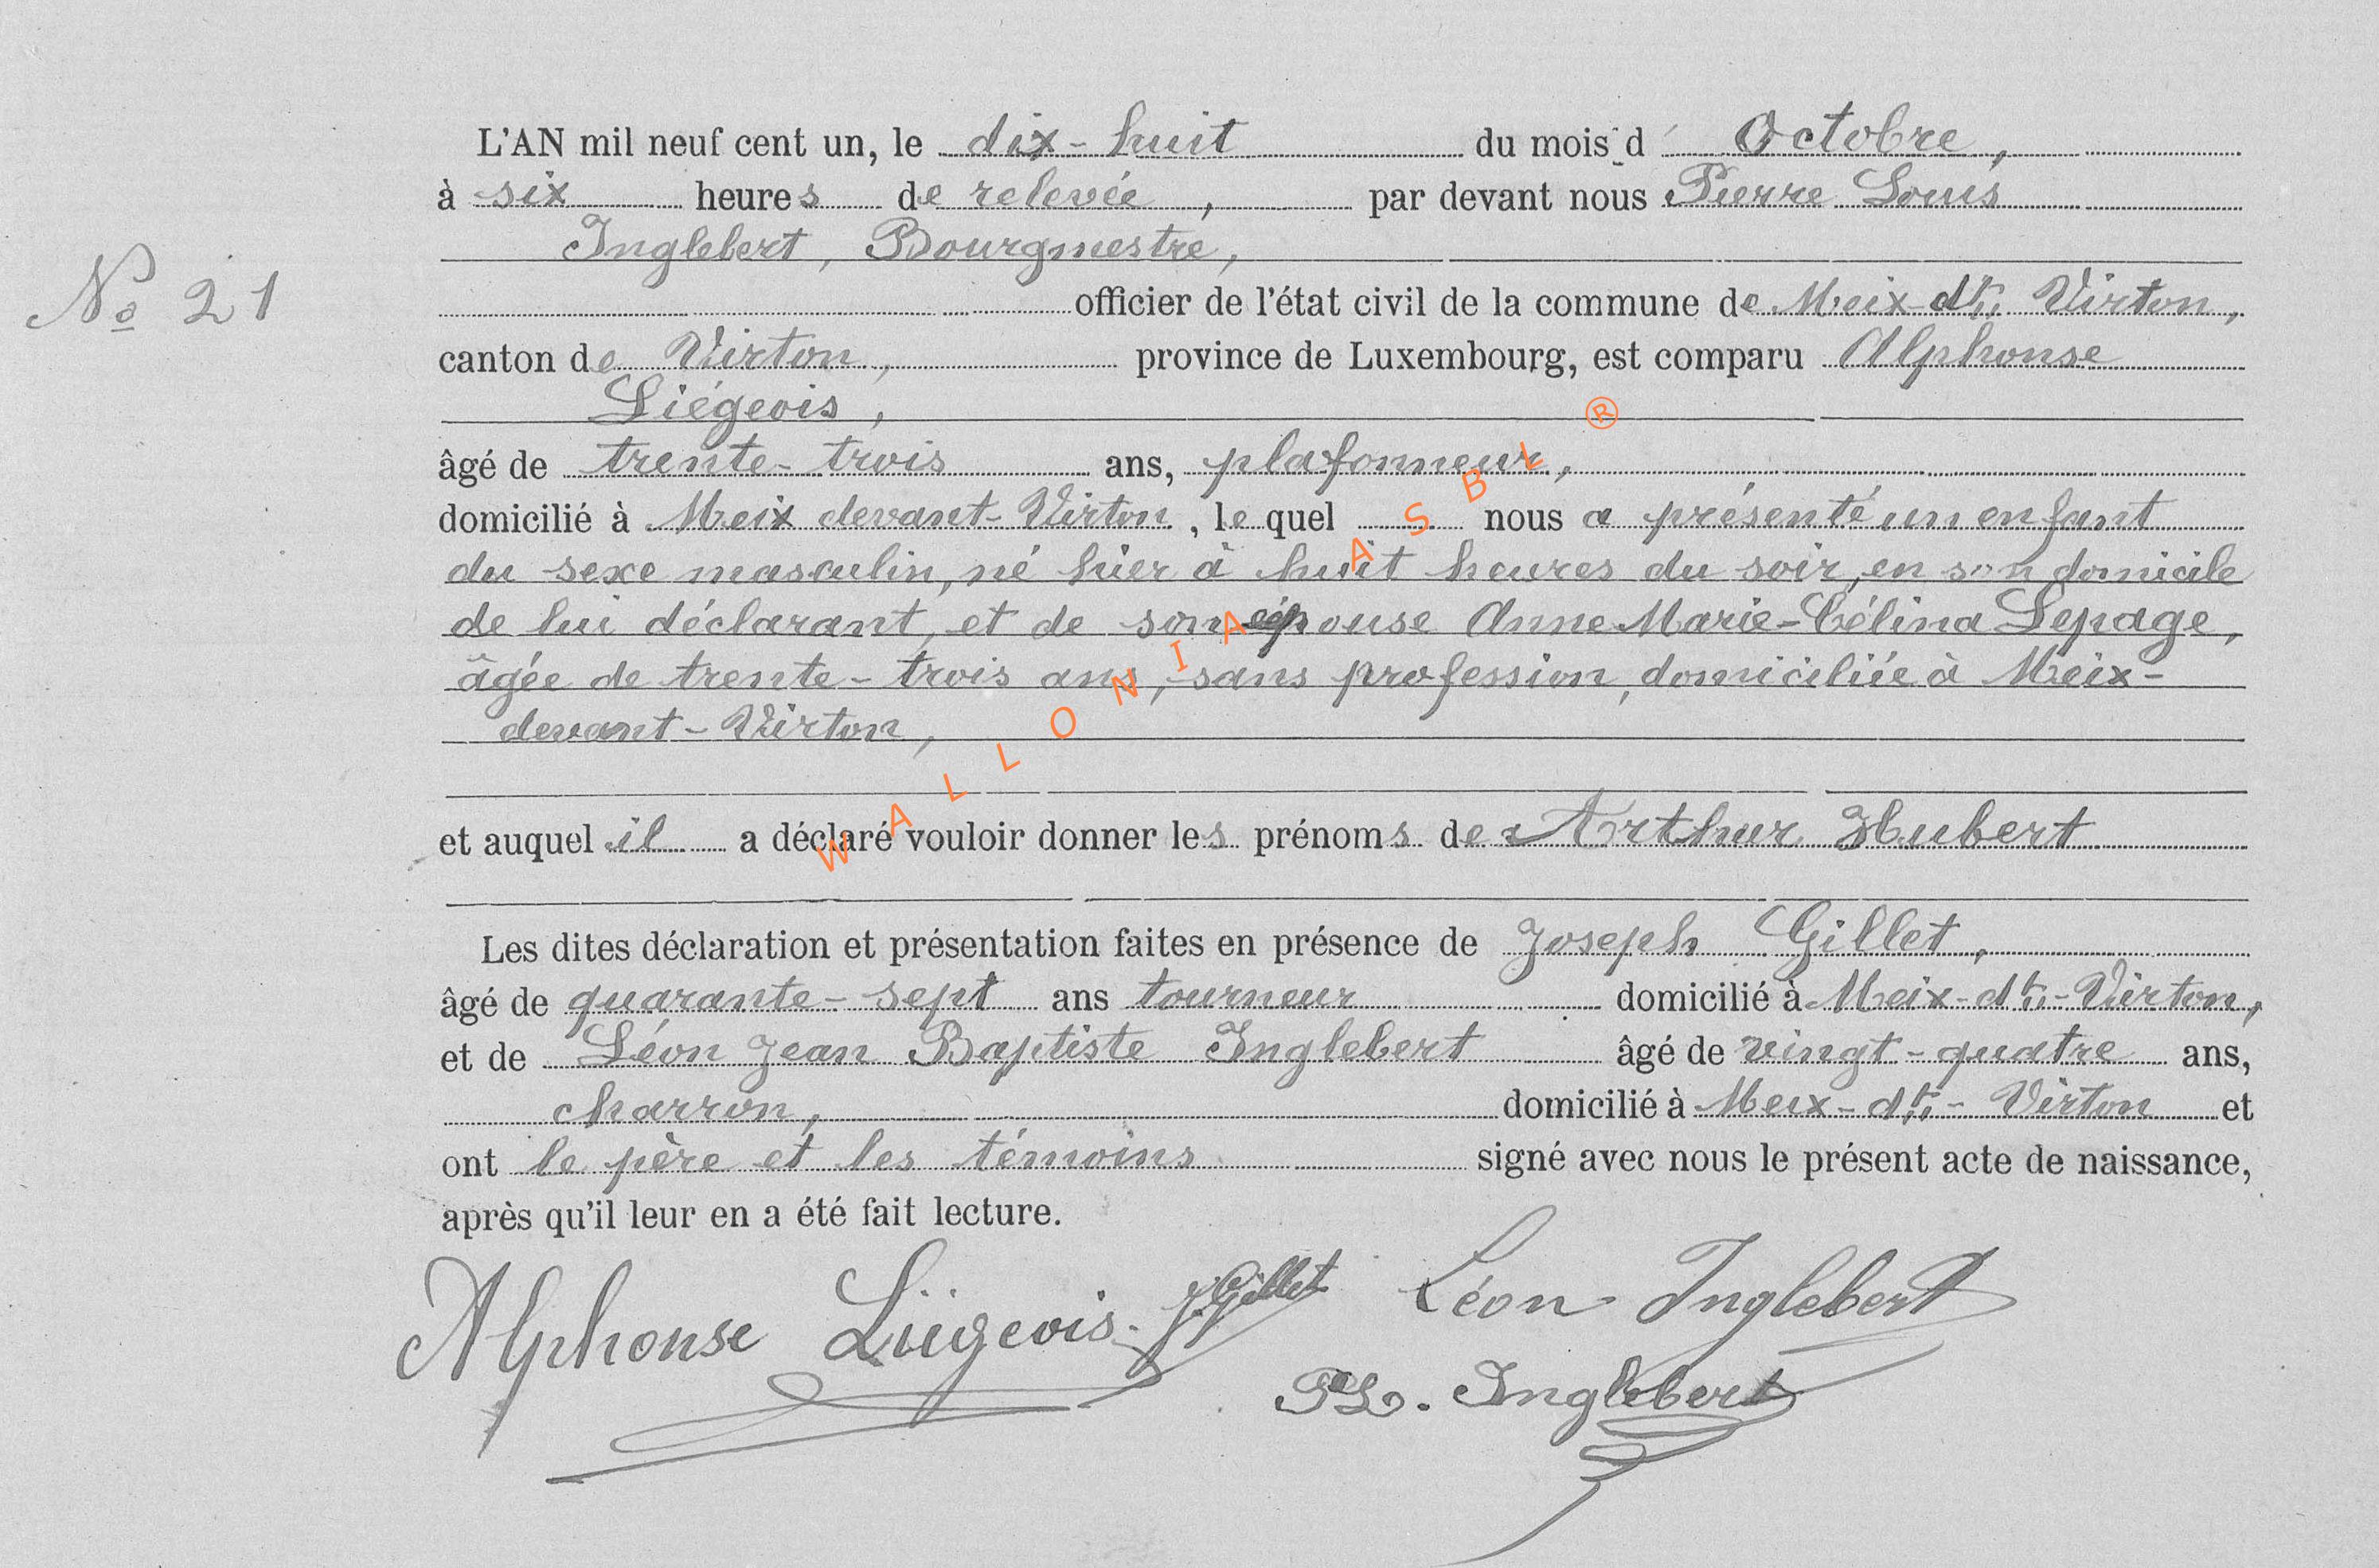 L'AN mil neuf cent un, le dix-huit du mois d' Octobre,
à six heures de relevée, par devant nous Pierre Louis
Inglebert, Bourgmestre,
Nº 21
officier de l'état civil de la commune de Meix-dt-Virton,
canton de Virton, province de Luxembourg, est comparu Alphonse
Liégeois,
âgé de trente-trois ans, plafonneur,
domicilié à Meix devant-Virton, le quel nous a présenté un enfant
du sexe masculin, né hier à huit heures du soir, en son domicile
de lui déclarant, et de son épouse Anne Marie-Célina Lepage,
âgée de trente-trois ans, sans profession, domiciliée à Meix-
devant-Virton,
et auquel il a déclaré vouloir donner les prénoms de Arthur Hubert
Les dites déclaration et présentation faites en présence de Joseph Gillet,
âgé de quarante-sept ans tourneur domicilié à Meix-dt-Virton,
et de Léon Jean Baptiste Inglebert âgé de vingt-quatre ans,
charron, domicilié à Meix-dt-Virton et
ont le père et les témoins signé avec nous le présent acte de naissance,
après qu'il leur en a été fait lecture.
Alphonse Liégeois. J. Gillet Léon Inglebert
PL. Inglebert
WALLONIA ASBL ®